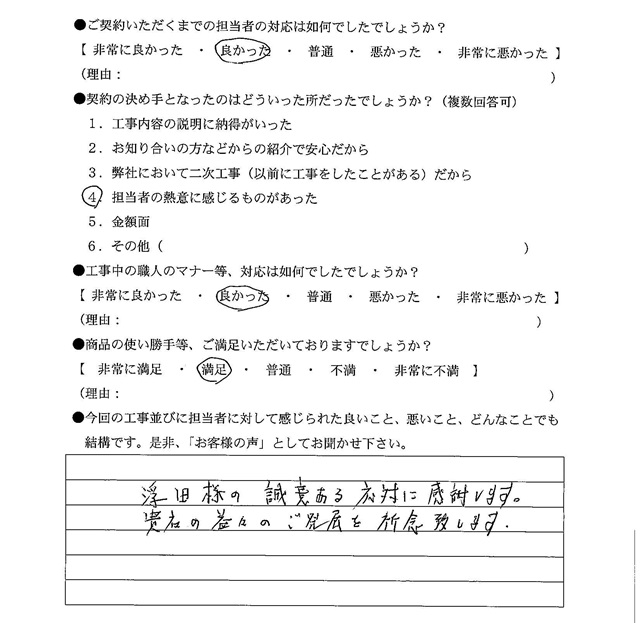 ●ご契約いただくまでの担当者の対応は如何でしたでしょうか？
【 非常に良かった ・ 良かった ・ 普通 ・ 悪かった ・ 非常に悪かった 】
（理由： ）
●契約の決め手となったのはどういった所だったでしょうか？（複数回答可）
１．工事内容の説明に納得がいった
２．お知り合いの方などからの紹介で安心だから
３．弊社において二次工事（以前に工事をしたことがある）だから
４．担当者の熱意に感じるものがあった
５．金額面
６．その他（ ）
●工事中の職人のマナー等、対応は如何でしたでしょうか？
【 非常に良かった ・ 良かった ・ 普通 ・ 悪かった ・ 非常に悪かった 】
（理由： ）
●商品の使い勝手等、ご満足いただいておりますでしょうか？
【 非常に満足 ・ 満足 ・ 普通 ・ 不満 ・ 非常に不満 】
（理由： ）
●今回の工事並びに担当者に対して感じられた良いこと、悪いこと、どんなことでも
結構です。是非、「お客様の声」としてお聞かせ下さい。
浮田様の誠意ある応対に感謝します。
貴社の益々のご発展を祈念致します.